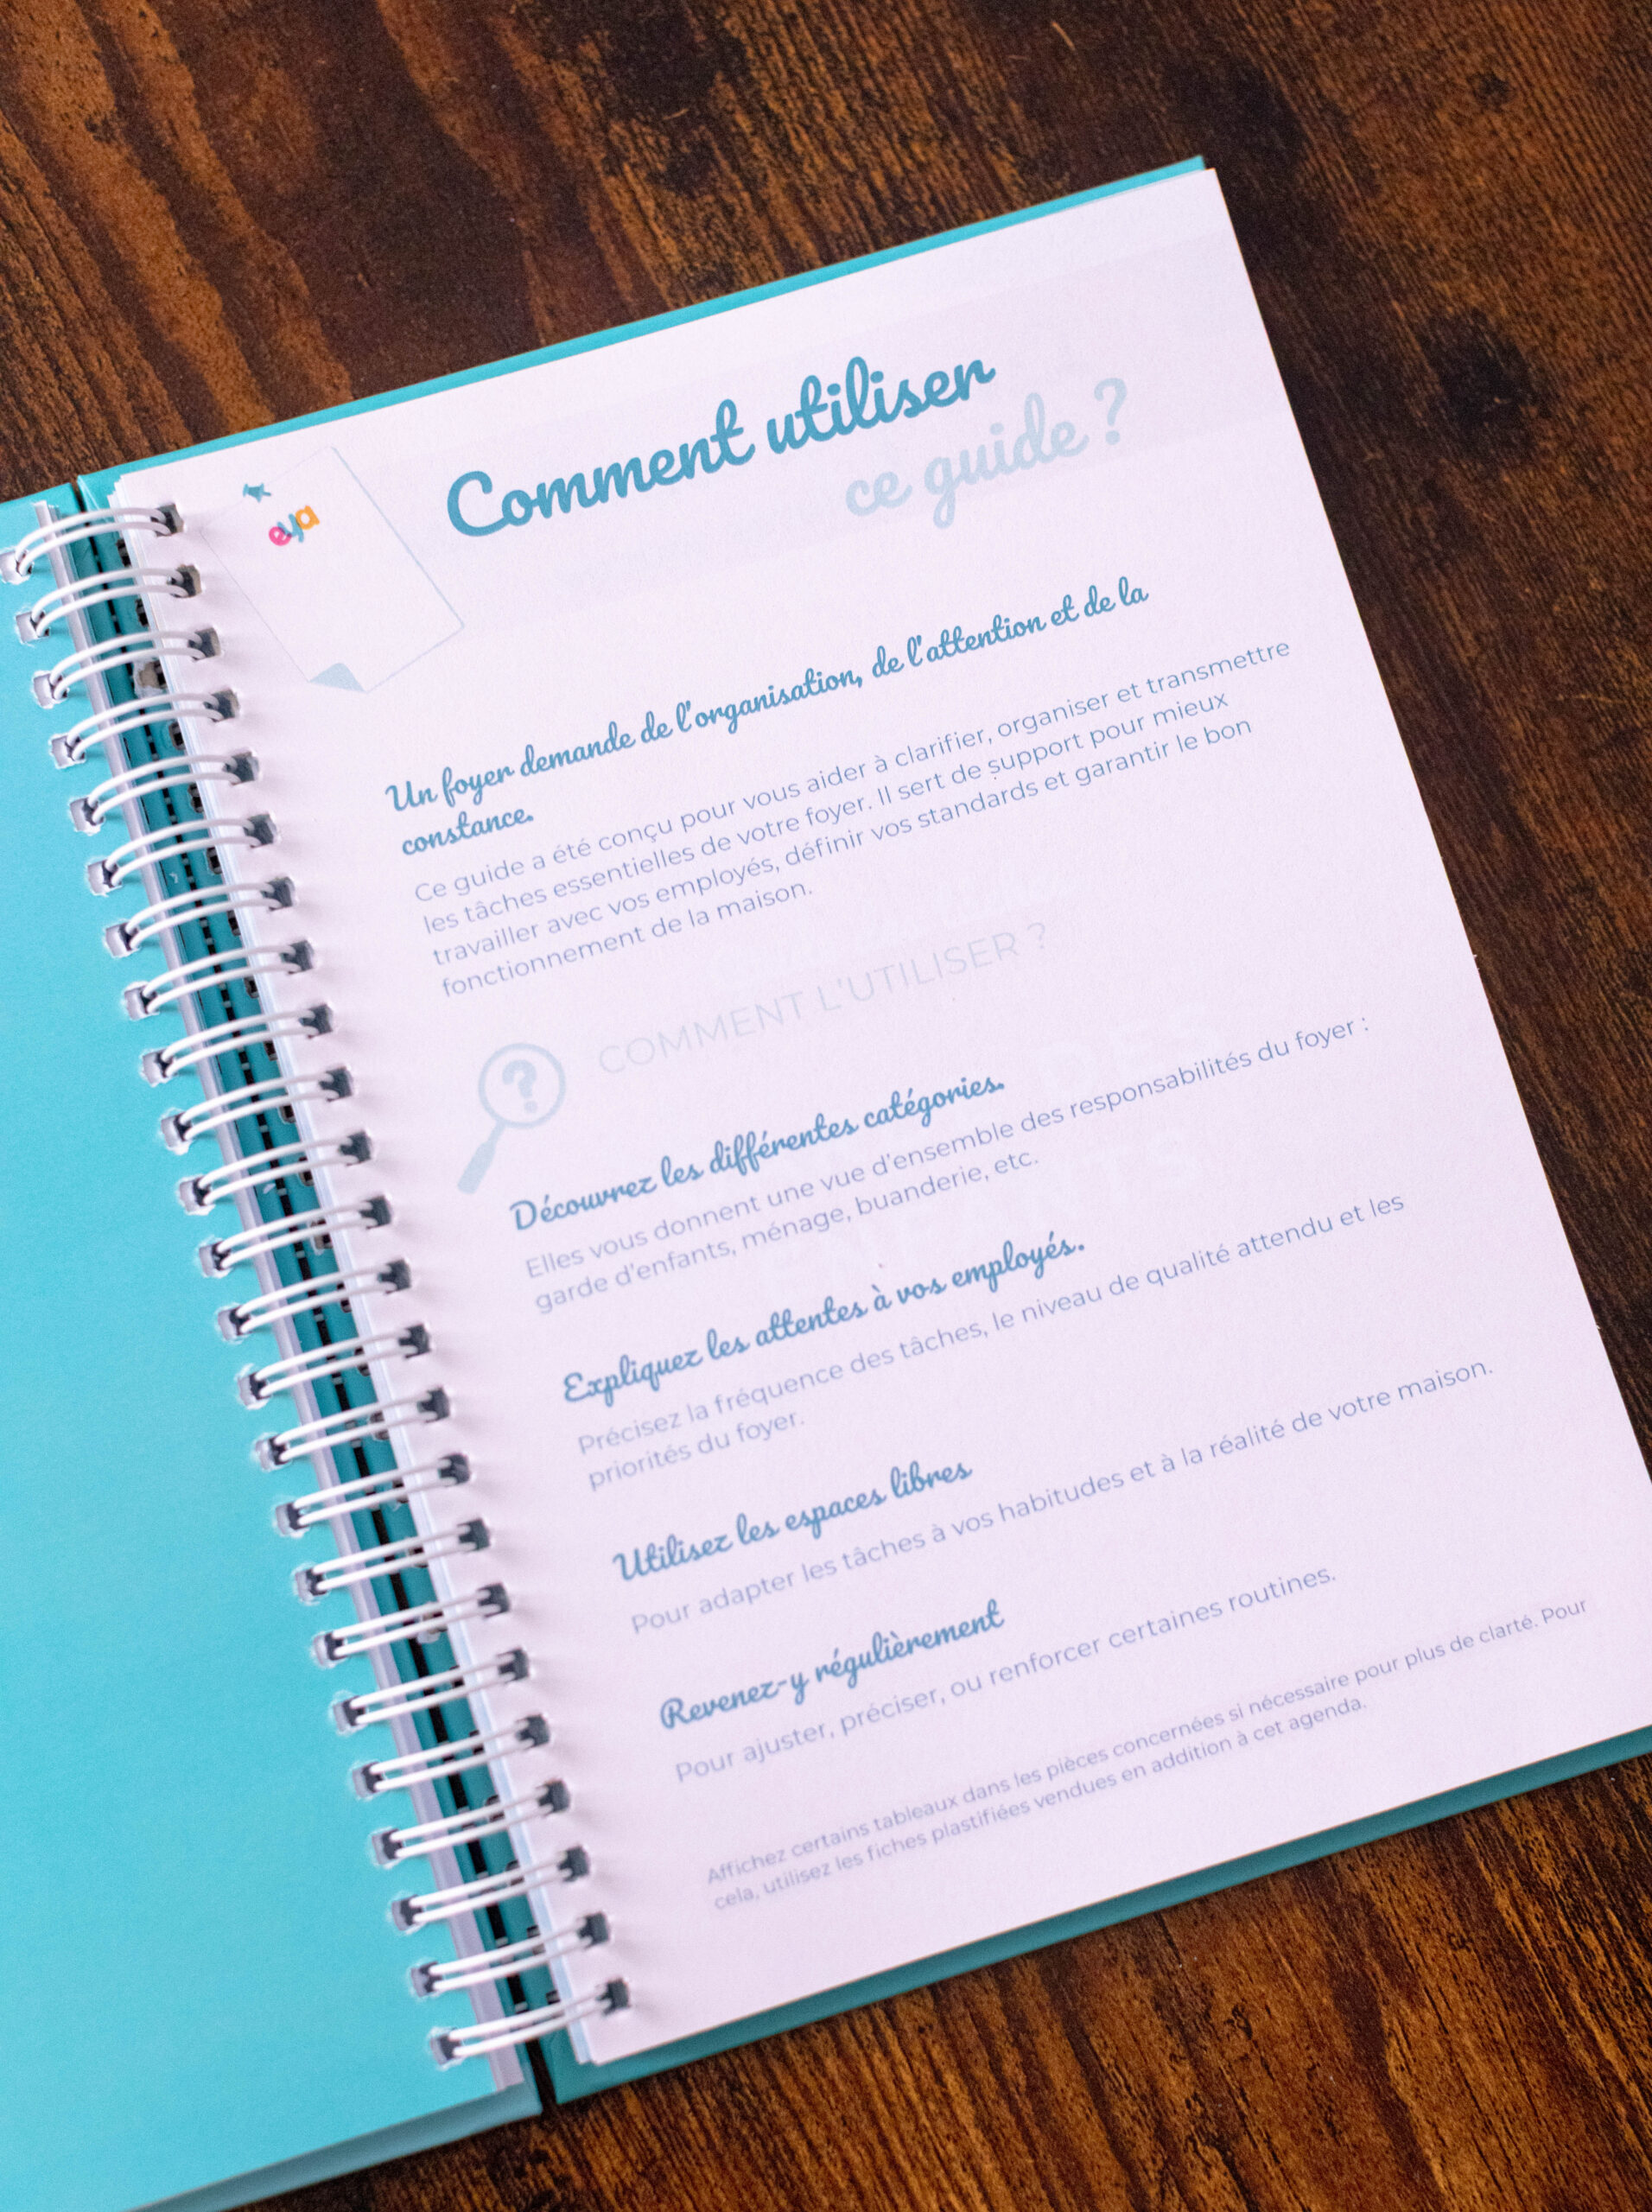 eya
Comment utiliser
ce guide ?
Un foyer demande de l'organisation, de l'attention et de la
constance.
Ce guide a été conçu pour vous aider à clarifier, organiser et transmettre
les tâches essentielles de votre foyer. Il sert de support pour mieux
travailler avec vos employés, définir vos standards et garantir le bon
fonctionnement de la maison.
COMMENT L'UTILISER ?
?
Découvrez les différentes catégories.
Elles vous donnent une vue d'ensemble des responsabilités du foyer :
garde d'enfants, ménage, buanderie, etc.
Expliquez les attentes à vos employés.
Précisez la fréquence des tâches, le niveau de qualité attendu et les
priorités du foyer.
Utilisez les espaces libres
Pour adapter les tâches à vos habitudes et à la réalité de votre maison.
Revenez-y régulièrement
Pour ajuster, préciser, ou renforcer certaines routines.
Affichez certains tableaux dans les pièces concernées si nécessaire pour plus de clarté. Pour
cela, utilisez les fiches plastifiées vendues en addition à cet agenda.